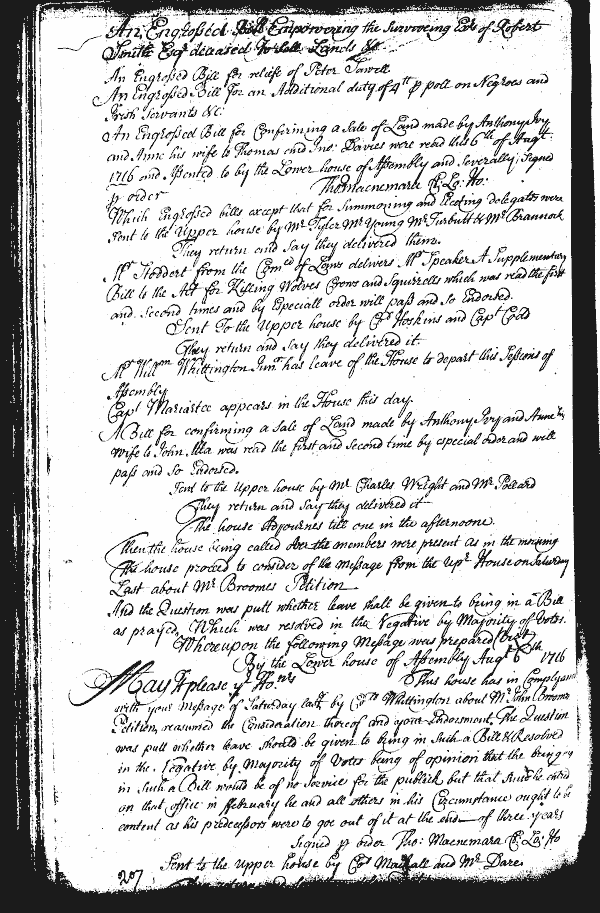 An Engrossed Bill Empowering the Surviveing Exrs of Robert
Smith Esqr deceased to sell Lands &c
An Engrossed Bill for reliefe of Peter Sawell
An Engrossed Bill for an Additional duty of 4th p poll on Negroes and
Irish Servants &c.
An Engrossed Bill for Confirming a Sale of Land made by Anthony Ivy
and Anne his wife to Thomas and Jno: Davies were read this 6th of Augt
1716 and Assented to by the Lower house of Assembly and Severally Signed
p order Tho: Macnemara Cl: Lo: Ho:
Which Engrossed bills except that for Summoning and Electing delegates were
sent to the Upper house by Mr Tyler Mr Young Mr Turbutt & Mr Brannock
They return and Say they delivered them.
Mr Stoddert from the Comee of Laws delivers Mr Speaker A Supplementary
Bill to the Act for Killing Wolves Crows and Squirrells which was read the first
and Second times and by Especiall order will pass and So Endorsed.
Sent To the Upper house by Coll Hoskins and Capt Codd
They return and Say they delivered it
Mr Willm Whittington Junr has leave of the House to depart this Sessions of
Assembly
Capt Mariartee appears in the House this day.
A Bill for confirming a Sale of Land made by Anthony Ivy and Anne his
wife to John was read the first and Second time by especial order and will
pass and So Endorsed.
Sent to the Upper house by Mr Charles Wright and Mr Pollard
They return and Say they delivered it
The house Adjournes till one in the afternoone.
Then the house being called Over the members were present as in the morning
The house proceed to consider of the Message from the Upr House on Saturday
Last about Mr Broomes Petition
And the Question was putt whether leave shall be given to bring in a Bill
as prayed, Which was resolved in the Negative by Majority of Votes.
Whereupon the following Message was prepared Vizt
By the Lower house of Assembly Augt 6th 1716
May it please yr Honrs This house has in Complyance
with your Message of Saturday last by Coll Whittington about Mr John Brooms
Petition, reassumed the Consideration thereof and your Endorsment, The Question
was putt whether leave Should be given to bring in Such a Bill & Resolved
in the Negative by Majority of Votes being of opinion that the bringing
in Such a Bill would be of no Service for the publick but that Since he entred
on that office in ffebruary he and all others in his Circumstance ought to be
content as his predecessors were to goe out of it at the end of three years
Signed p order Tho: Macnemara Cl: Lo: Ho
Sent to the Upper house by Coll Mackall and Mr Dare.
207